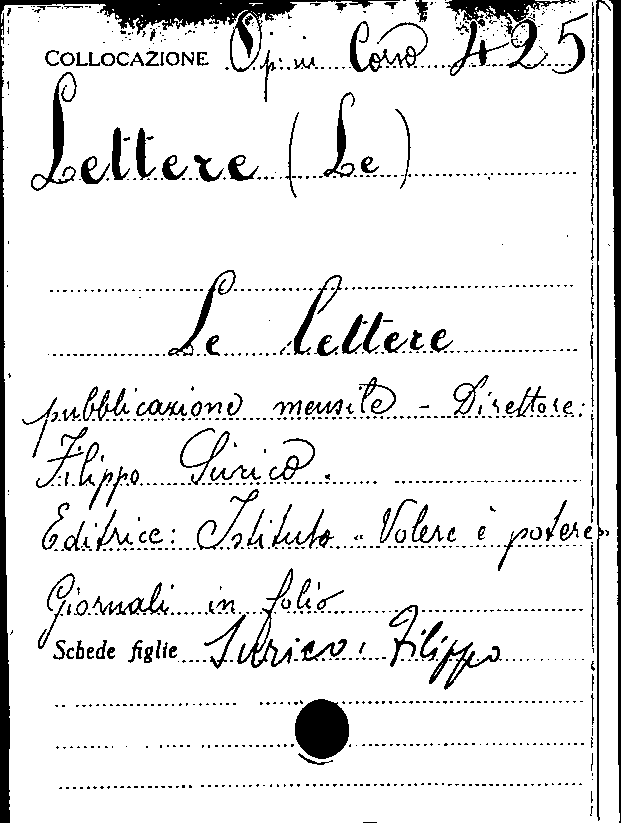 COLLOCAZIONE Op. in Corso 425
Lettere (Le)
Le lettere
pubblicazione mensile - Direttore:
Filippo Surico.
Editrice: Istituto "Volere è potere"
Giornali in folio
Schede figlie Surico, Filippo